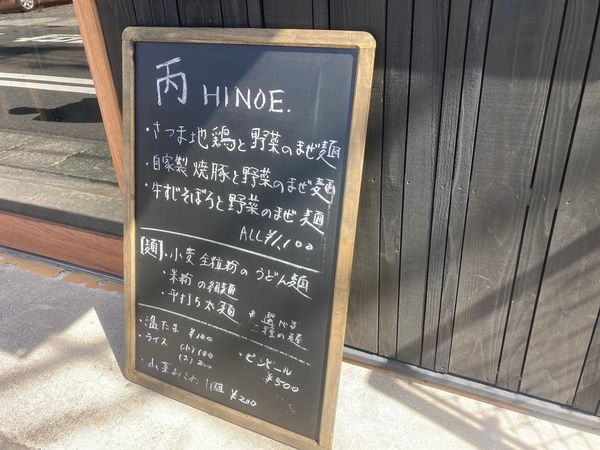 丙 HINOE.
・さつま地鶏と野菜のまぜ麺
・自家製 焼豚と野菜のまぜ麺
・牛すじそぼろと野菜のまぜ麺
ALL ¥1,100
【麺】・小麦全粒粉のうどん麺
・米粉の細麺
・平打ち太麺
＊選べる二種の麺
・温たま ¥120
・ライス (小) 100
(大) 200
・ビンビール ¥500
・山菜おこわ 1個 ¥200